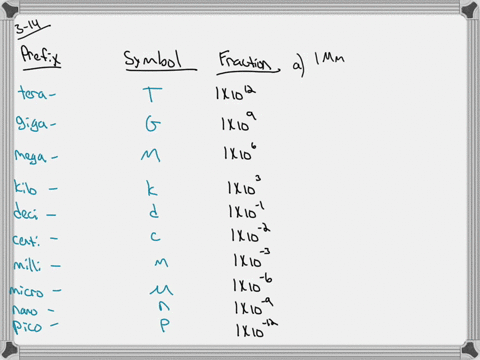 3-14
Prefix Symbol Fraction a) 1 Mm
tera- T 1x10^12
giga- G 1x10^9
mega- M 1x10^6
kilo- k 1x10^3
deci- d 1x10^-1
centi- c 1x10^-2
milli- m 1x10^-3
micro- μ 1x10^-6
nano- n 1x10^-9
pico- p 1x10^-12